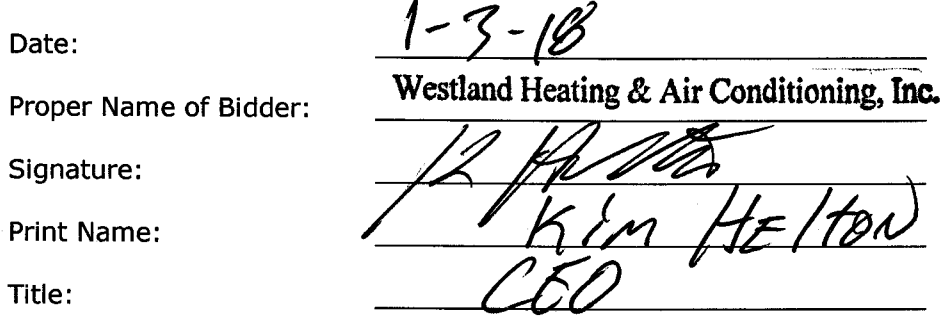 Date: 1-3-18
Proper Name of Bidder: Westland Heating & Air Conditioning, Inc.
Signature:
Print Name: Kim HElTON
Title: CEO